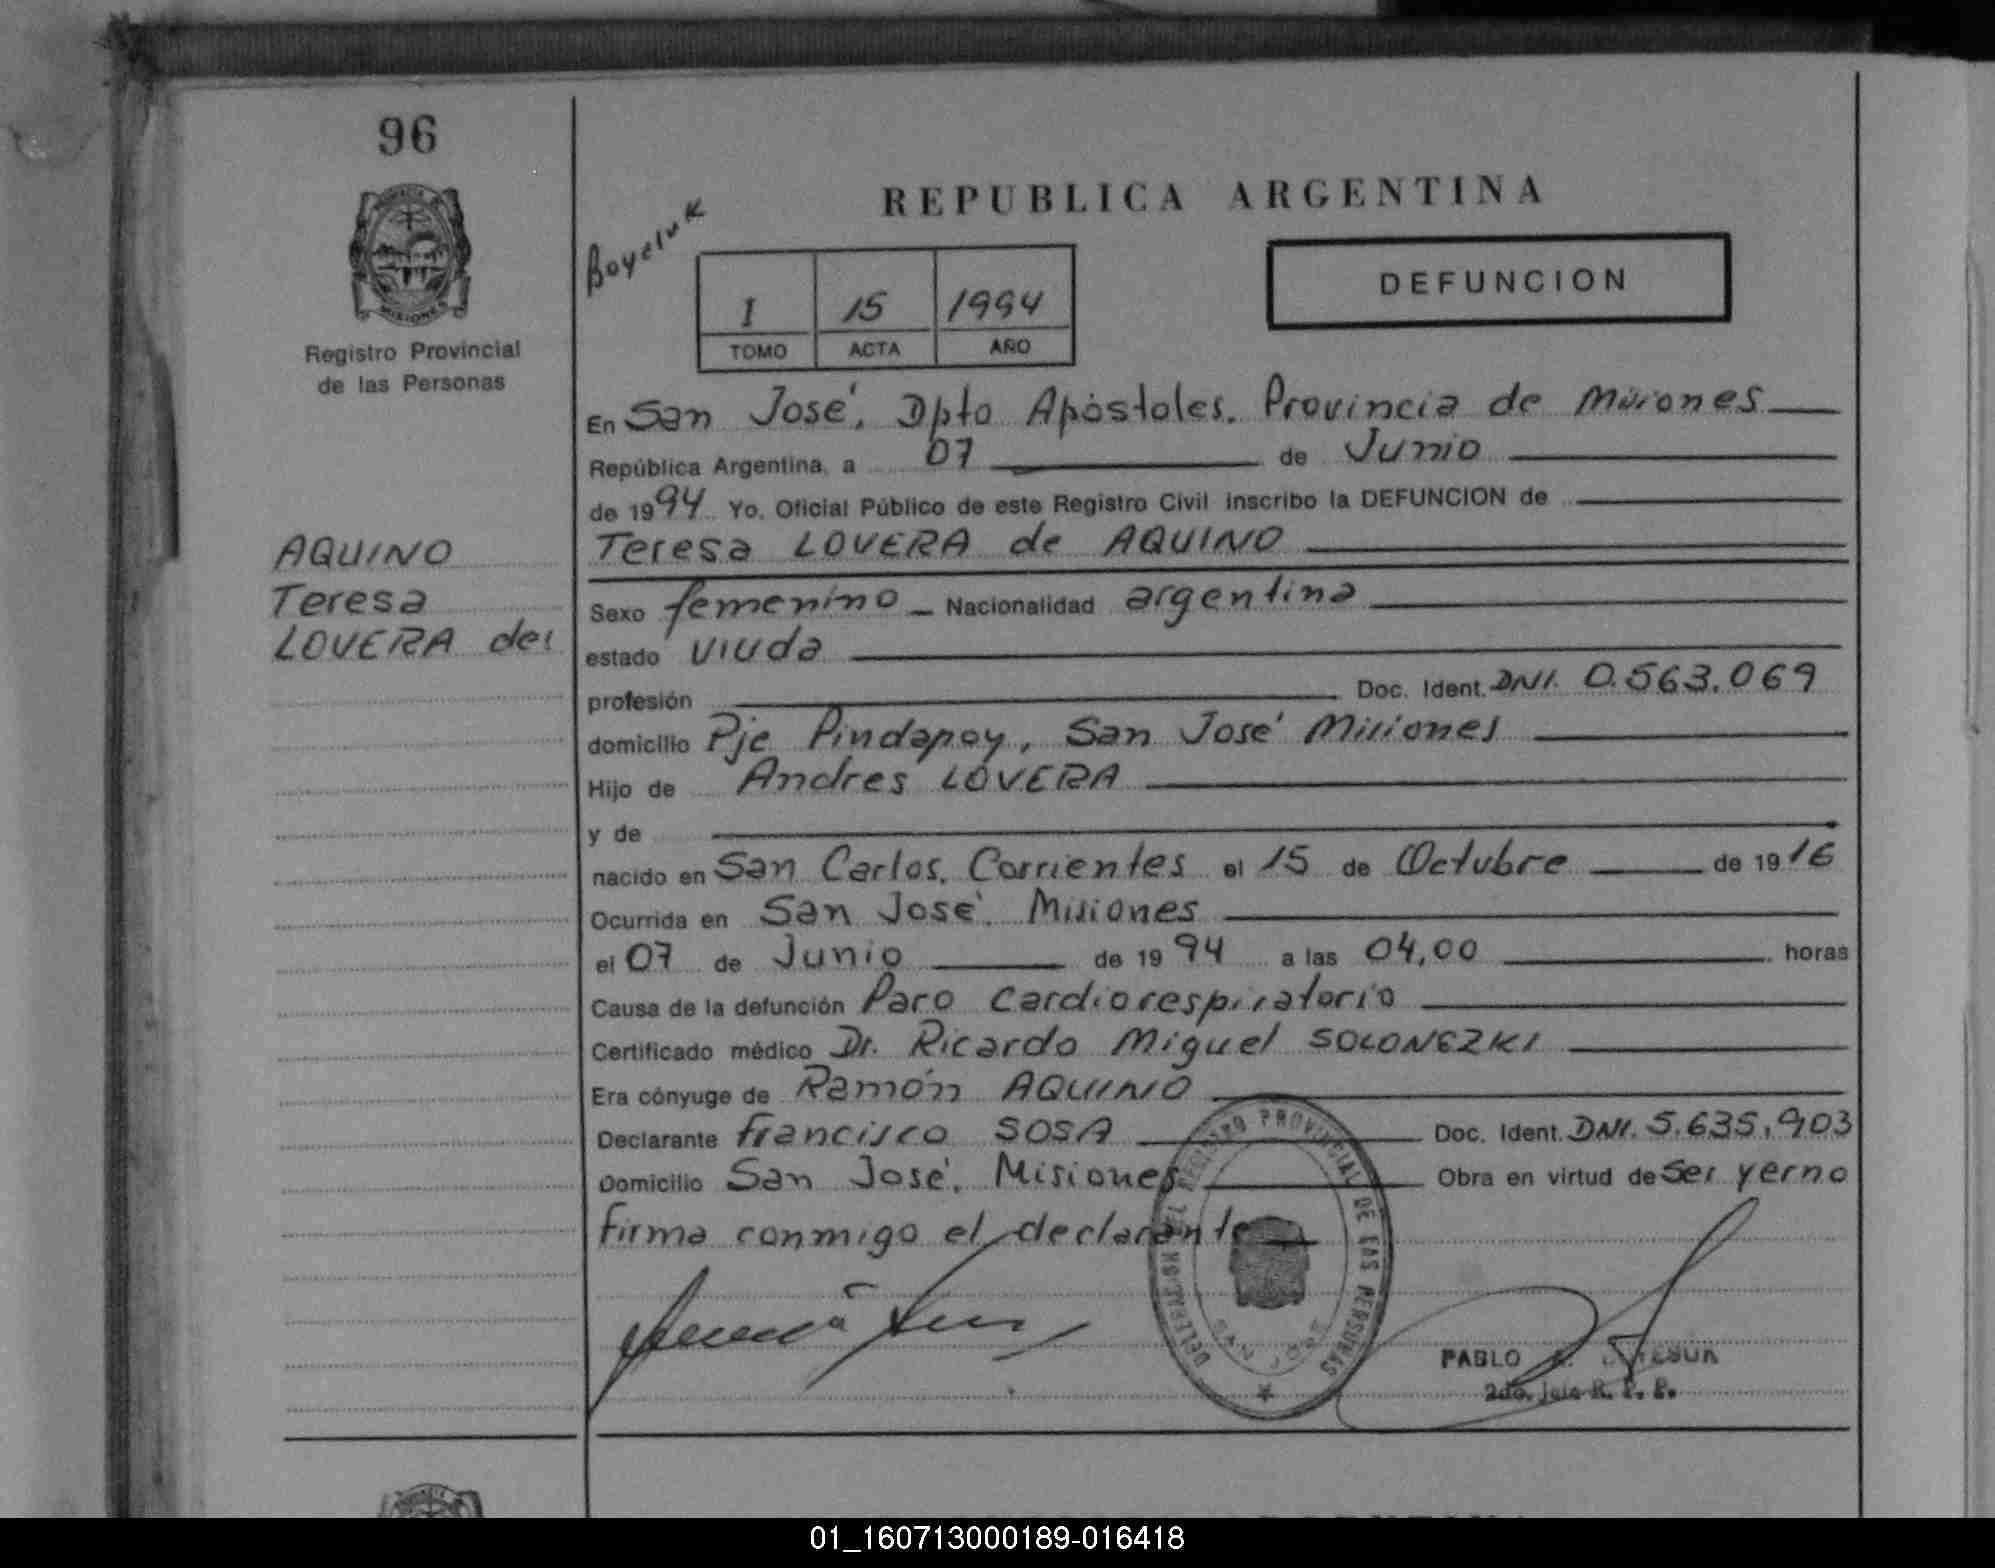 96
REPUBLICA ARGENTINA
Boyeluk
DEFUNCION
I 15 1994
TOMO ACTA AÑO
MISIONES
Registro Provincial
de las Personas
En San José, Dpto Apóstoles. Provincia de Misiones
República Argentina, a 07 de Junio
de 1994 Yo, Oficial Público de este Registro Civil inscribo la DEFUNCION de
AQUINO
Teresa
LOVERA de
Teresa LOVERA de AQUINO
Sexo femenino Nacionalidad argentina
estado viuda
profesión Doc. Ident. DNI. 0.563.069
domicilio Pje Pindapoy, San José Misiones
Hijo de Andres LOVERA
y de
nacido en San Carlos. Corrientes el 15 de Octubre de 1916
Ocurrida en San José. Misiones
el 07 de Junio de 1994 a las 04,00 horas
Causa de la defunción Paro cardiorespiratorio
Certificado médico Dr. Ricardo Miguel SOLONEZKI
Era cónyuge de Ramón AQUINO
Declarante Francisco SOSA Doc. Ident. DNI. 5.635.903
Domicilio San José. Misiones Obra en virtud de ser yerno
firma conmigo el declarante
DELEGACION DEL REGISTRO PROVINCIAL DE LAS PERSONAS
PABLO
2do. Jefe R. P. P.
01_160713000189-016418